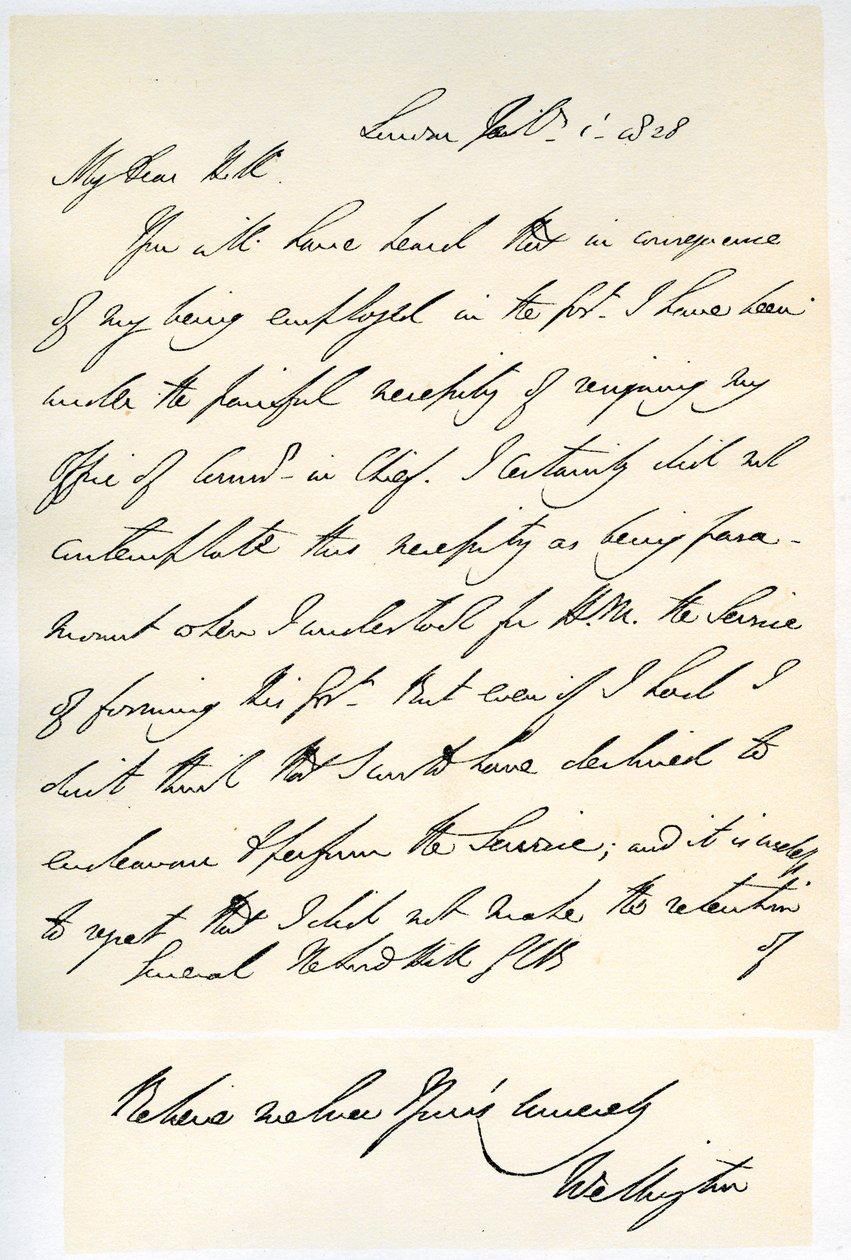 London Feb.y 1st 1828
My Dear Hill.
You will have heard that in consequence
of my being employed in the Govt. I have been
under the painful necessity of resigning my
Office of Commr in Chief. I certainly did not
contemplate this necessity as being para-
mount when I undertook for H.M. the Service
of forming his Govt. But even if I had I
don't think that I could have declined to
endeavour to perform the Service; and it is useless
to repeat that I did not make the retention
General The Lord Hill GCB of
Believe me Ever Your's Sincerely
Wellington